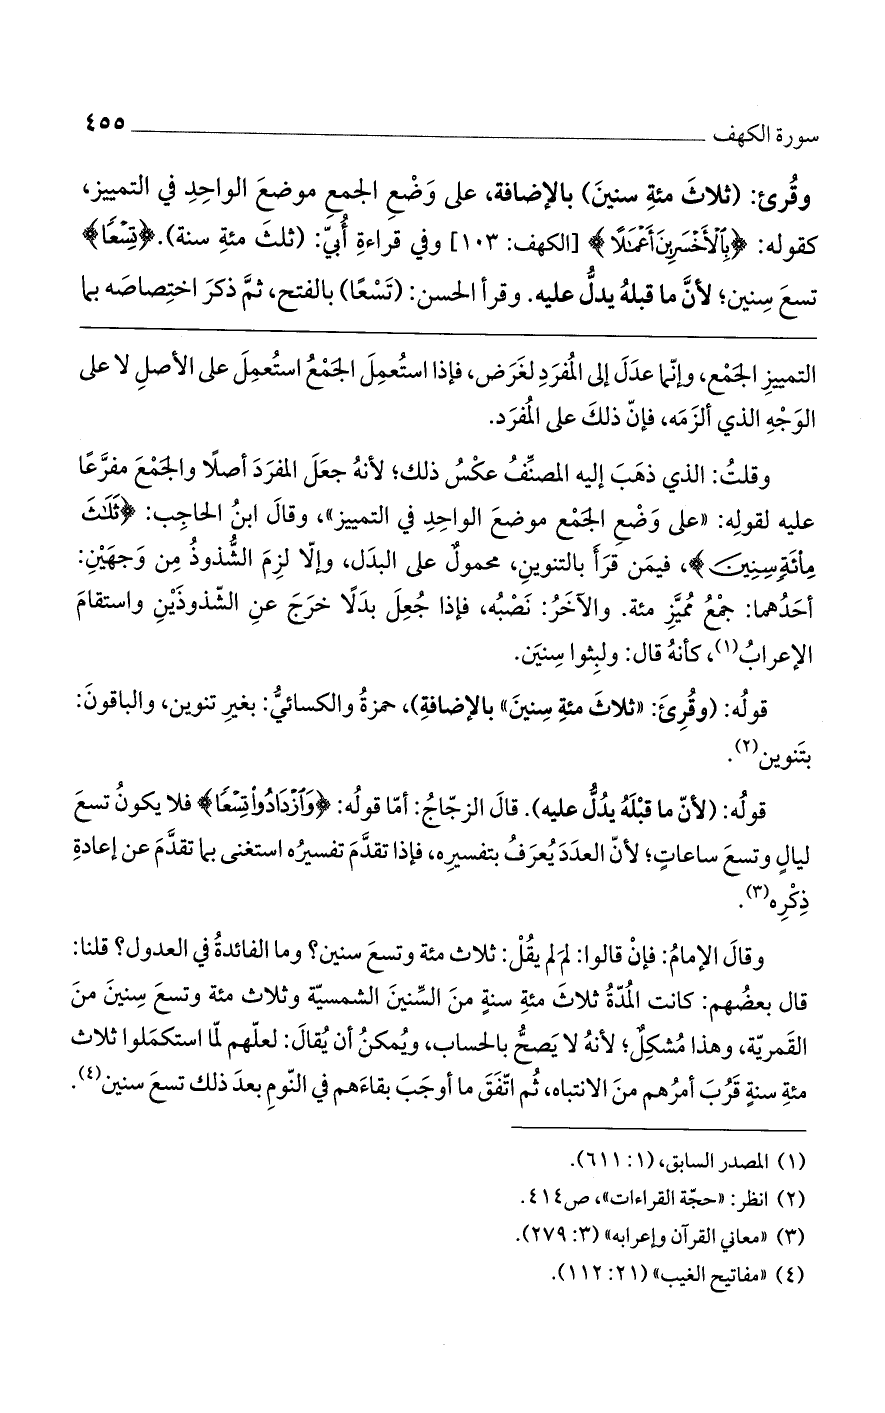 سورة الكهف ٤٥٥
وقُرئ: (ثلاثَ مئةِ سنينَ) بالإضافة، على وَضْعِ الجمعِ موضعَ الواحِدِ في التمييز،
كقوله: ﴿بِٱلۡأَخۡسَرِينَ أَعۡمَٰلًا﴾ [الكهف: ١٠٣] وفي قراءةِ أُبيّ: (ثلثَ مئةِ سنة). ﴿تِسۡعًا﴾
تسعَ سِنين؛ لأنَّ ما قبلهُ يدلُّ عليه. وقرأ الحسن: (تَسْعًا) بالفتح، ثمَّ ذكرَ اختِصاصَه بما
التمييزِ الجَمْع، وإنّما عدَلَ إلى المُفرَدِ لغَرَض، فإذا استُعمِلَ الجَمْعُ استُعمِلَ على الأصلِ لا على
الوَجْهِ الذي ألزَمَه، فإنّ ذلكَ على المُفرَد.
وقلتُ: الذي ذهَبَ إليه المصنِّفُ عكْسُ ذلك؛ لأنهُ جعَلَ المفرَدَ أصلًا والجَمْعَ مفرَّعًا
عليه لقولِه: «على وَضْعِ الجَمْعِ موضعَ الواحِدِ في التمييز»، وقالَ ابنُ الحاجِب: ﴿ثَلَٰثَ
مِاْئَةٍ سِنِينَ﴾، فيمَن قرَأَ بالتنوين، محمولٌ على البدَل، وإلّا لزِمَ الشُّذوذُ مِن وَجهَيْن:
أحَدُهما: جمْعُ مُميَّزِ مئة. والآخَرُ: نَصْبُه، فإذا جُعِلَ بدَلًا خرَجَ عنِ الشّذوذَيْنِ واستقامَ
الإعرابُ(١)، كأنهُ قال: ولبِثوا سِنيَن.
قولُه: (وقُرِئَ: «ثلاثَ مئةِ سِنينَ» بالإضافةِ)، حمزةُ والكسائيُّ: بغيرِ تنوين، والباقونَ:
بتَنوين(٢).
قولُه: (لأنّ ما قبْلَهُ يدُلُّ عليه). قالَ الزجّاجُ: أمّا قولُه: ﴿وَٱزۡدَادُواْ تِسۡعًا﴾ فلا يكونُ تسعَ
ليالٍ وتسعَ ساعاتٍ؛ لأنّ العدَدَ يُعرَفُ بتفسيرِه، فإذا تقدَّمَ تفسيرُه استغنى بما تقدَّمَ عن إعادةِ
ذِكْرِه(٣).
وقالَ الإمامُ: فإنْ قالوا: لمَ لم يقُلْ: ثلاث مئة وتسعَ سنين؟ وما الفائدةُ في العدول؟ قلنا:
قال بعضُهم: كانت المُدّةُ ثلاثَ مئةِ سنةٍ منَ السِّنينَ الشمسيّة وثلاث مئة وتسعَ سِنينَ منَ
القمريّة، وهذا مُشكِلٌ؛ لأنهُ لا يَصحُّ بالحساب، ويُمكنُ أن يُقالَ: لعلّهم لمّا استكمَلوا ثلاث
مئةِ سنةٍ قَرُبَ أمرُهم منَ الانتباه، ثُم اتّفَقَ ما أوجَبَ بقاءَهم في النّومِ بعدَ ذلك تسعَ سنين(٤).
(١) المصدر السابق، (١: ٦١١).
(٢) انظر: «حجّة القراءات»، ص٤١٤.
(٣) «معاني القرآن وإعرابه» (٣: ٢٧٩).
(٤) «مفاتيح الغيب» (٢١: ١١٢).